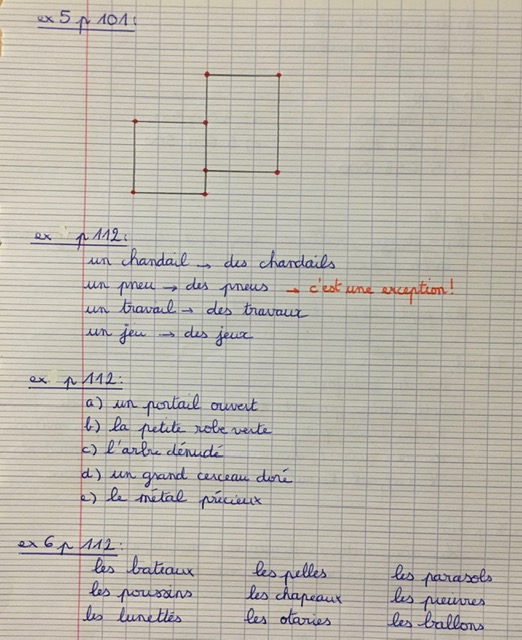 ex 5 p 101:
ex p 112:
un chandail → des chandails
un pneu → des pneus → c'est une exception!
un travail → des travaux
un jeu → des jeux
ex p 112:
a) un portail ouvert
b) la petite robe verte
c) l'arbre dénudé
d) un grand cerceau doré
e) le métal précieux
ex 6 p 112:
les bateaux les pelles les parasols
les poussins les chapeaux les pieuvres
les lunettes les otaries les ballons